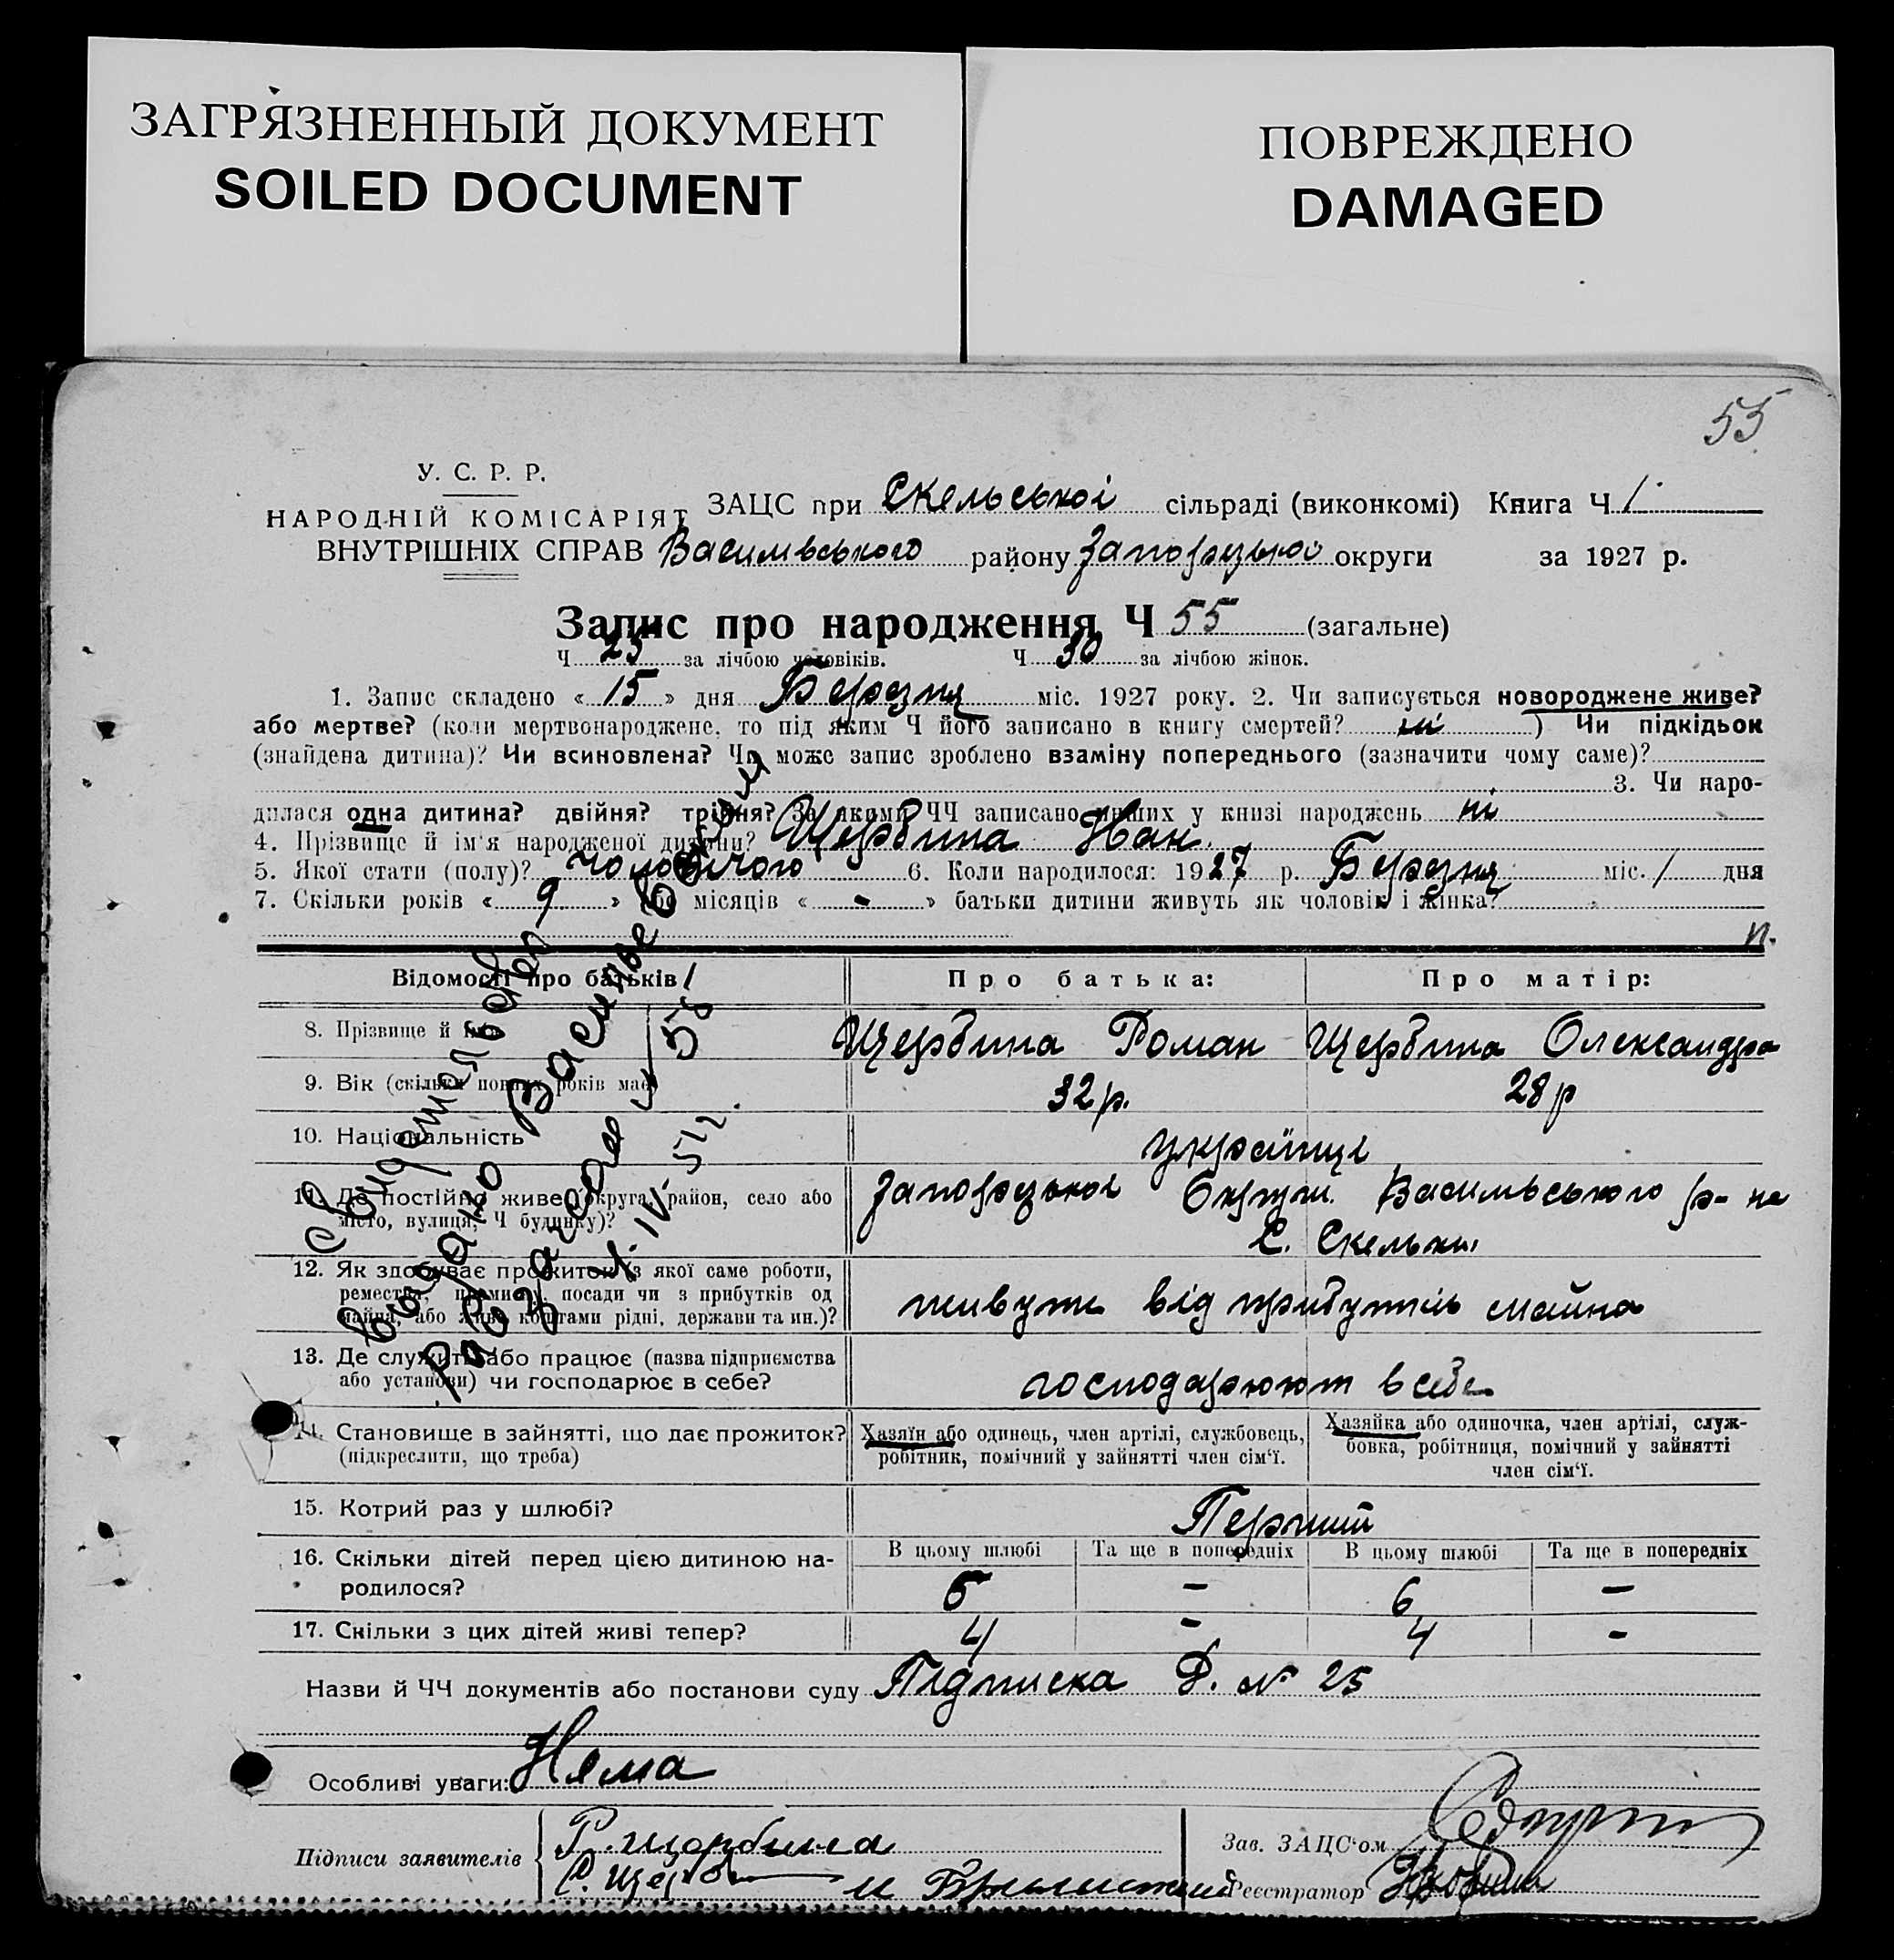 ЗАГРЯЗНЕННЫЙ ДОКУМЕНТ
SOILED DOCUMENT
ПОВРЕЖДЕНО
DAMAGED
55
У. С. Р. Р.
НАРОДНІЙ КОМІСАРІЯТ
ВНУТРІШНІХ СПРАВ
ЗАЦС при Скельської сільраді (виконкомі) Книга Ч 1.
Василівського району Запорізької округи за 1927 р.
Запис про народження Ч 55 (загальне)
Ч 25 за лічбою чоловіків. Ч 30 за лічбою жінок.
1. Запис складено « 15 » дня Березня міс. 1927 року. 2. Чи записується новороджене живе?
або мертве? (коли мертвонароджене, то під яким Ч його записано в книгу смертей? ні ) Чи підкідьок
(знайдена дитина)? Чи всиновлена? Чи може запис зроблено взаміну попереднього (зазначити чому саме)?
3. Чи наро-
дилася одна дитина? двійня? трійня? За якими ЧЧ записано инших у книзі народжень ні
4. Прізвище й ім'я народженої дитини? Щербина Иан.
5. Якої стати (полу)? чоловічого 6. Коли народилося: 1927 р. Березня міс. 1 дня
7. Скільки років « 9 » або місяців « - » батьки дитини живуть як чоловік і жінка?
п.
Відомості про батьків
Про батька:
Про матір:
8. Прізвище й імя
Щербина Роман
Щербина Олександра
9. Вік (скільки повних років має)
32 р.
28 р
10. Національність
українці
11. Де постійно живе (округа, район, село або
місто, вулиця, Ч будинку)?
Запорізької Округи. Васильвського р-на
С. Скельки
12. Як здобуває прожиток (з якої саме роботи,
ремества, промислу, посади чи з прибутків од
майна, або живе коштами рідні, держави та ин.)?
живуть від прибутків майна
13. Де служить або працює (назва підприємства
або установи) чи господарює в себе?
господарюют в себе
14. Становище в зайнятті, що дає прожиток?
(підкреслити, що треба)
Хазяїн або одинець, член артілі, службовець,
робітник, помічний у зайнятті член сім'ї.
Хазяйка або одиночка, член артілі, служ-
бовка, робітниця, помічний у зайнятті
член сім'ї.
15. Котрий раз у шлюбі?
Перший
16. Скільки дітей перед цією дитиною на-
родилося?
В цьому шлюбі
Та ще в попередніх
В цьому шлюбі
Та ще в попередніх
5 - 6 -
17. Скільки з цих дітей живі тепер?
4 - 4 -
Назви й ЧЧ документів або постанови суду Підписка Д. № 25
Особливі уваги: Нема
Підписи заявителів
Р. щорбина
Зав. ЗАЦС'ом
Реєстратор
Свидетельство
выдано Васильевским
Рай Загсом
4. IV. 51г.